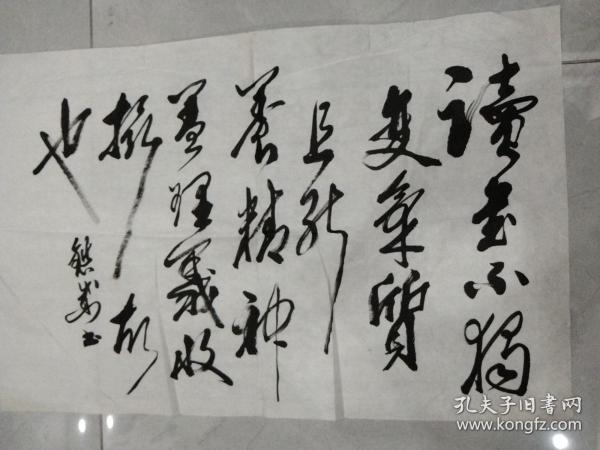 讀書不獨
變氣質
且能
養精神
蓋理義收
攝故
也
書
孔夫子旧书网
www.kongfz.com